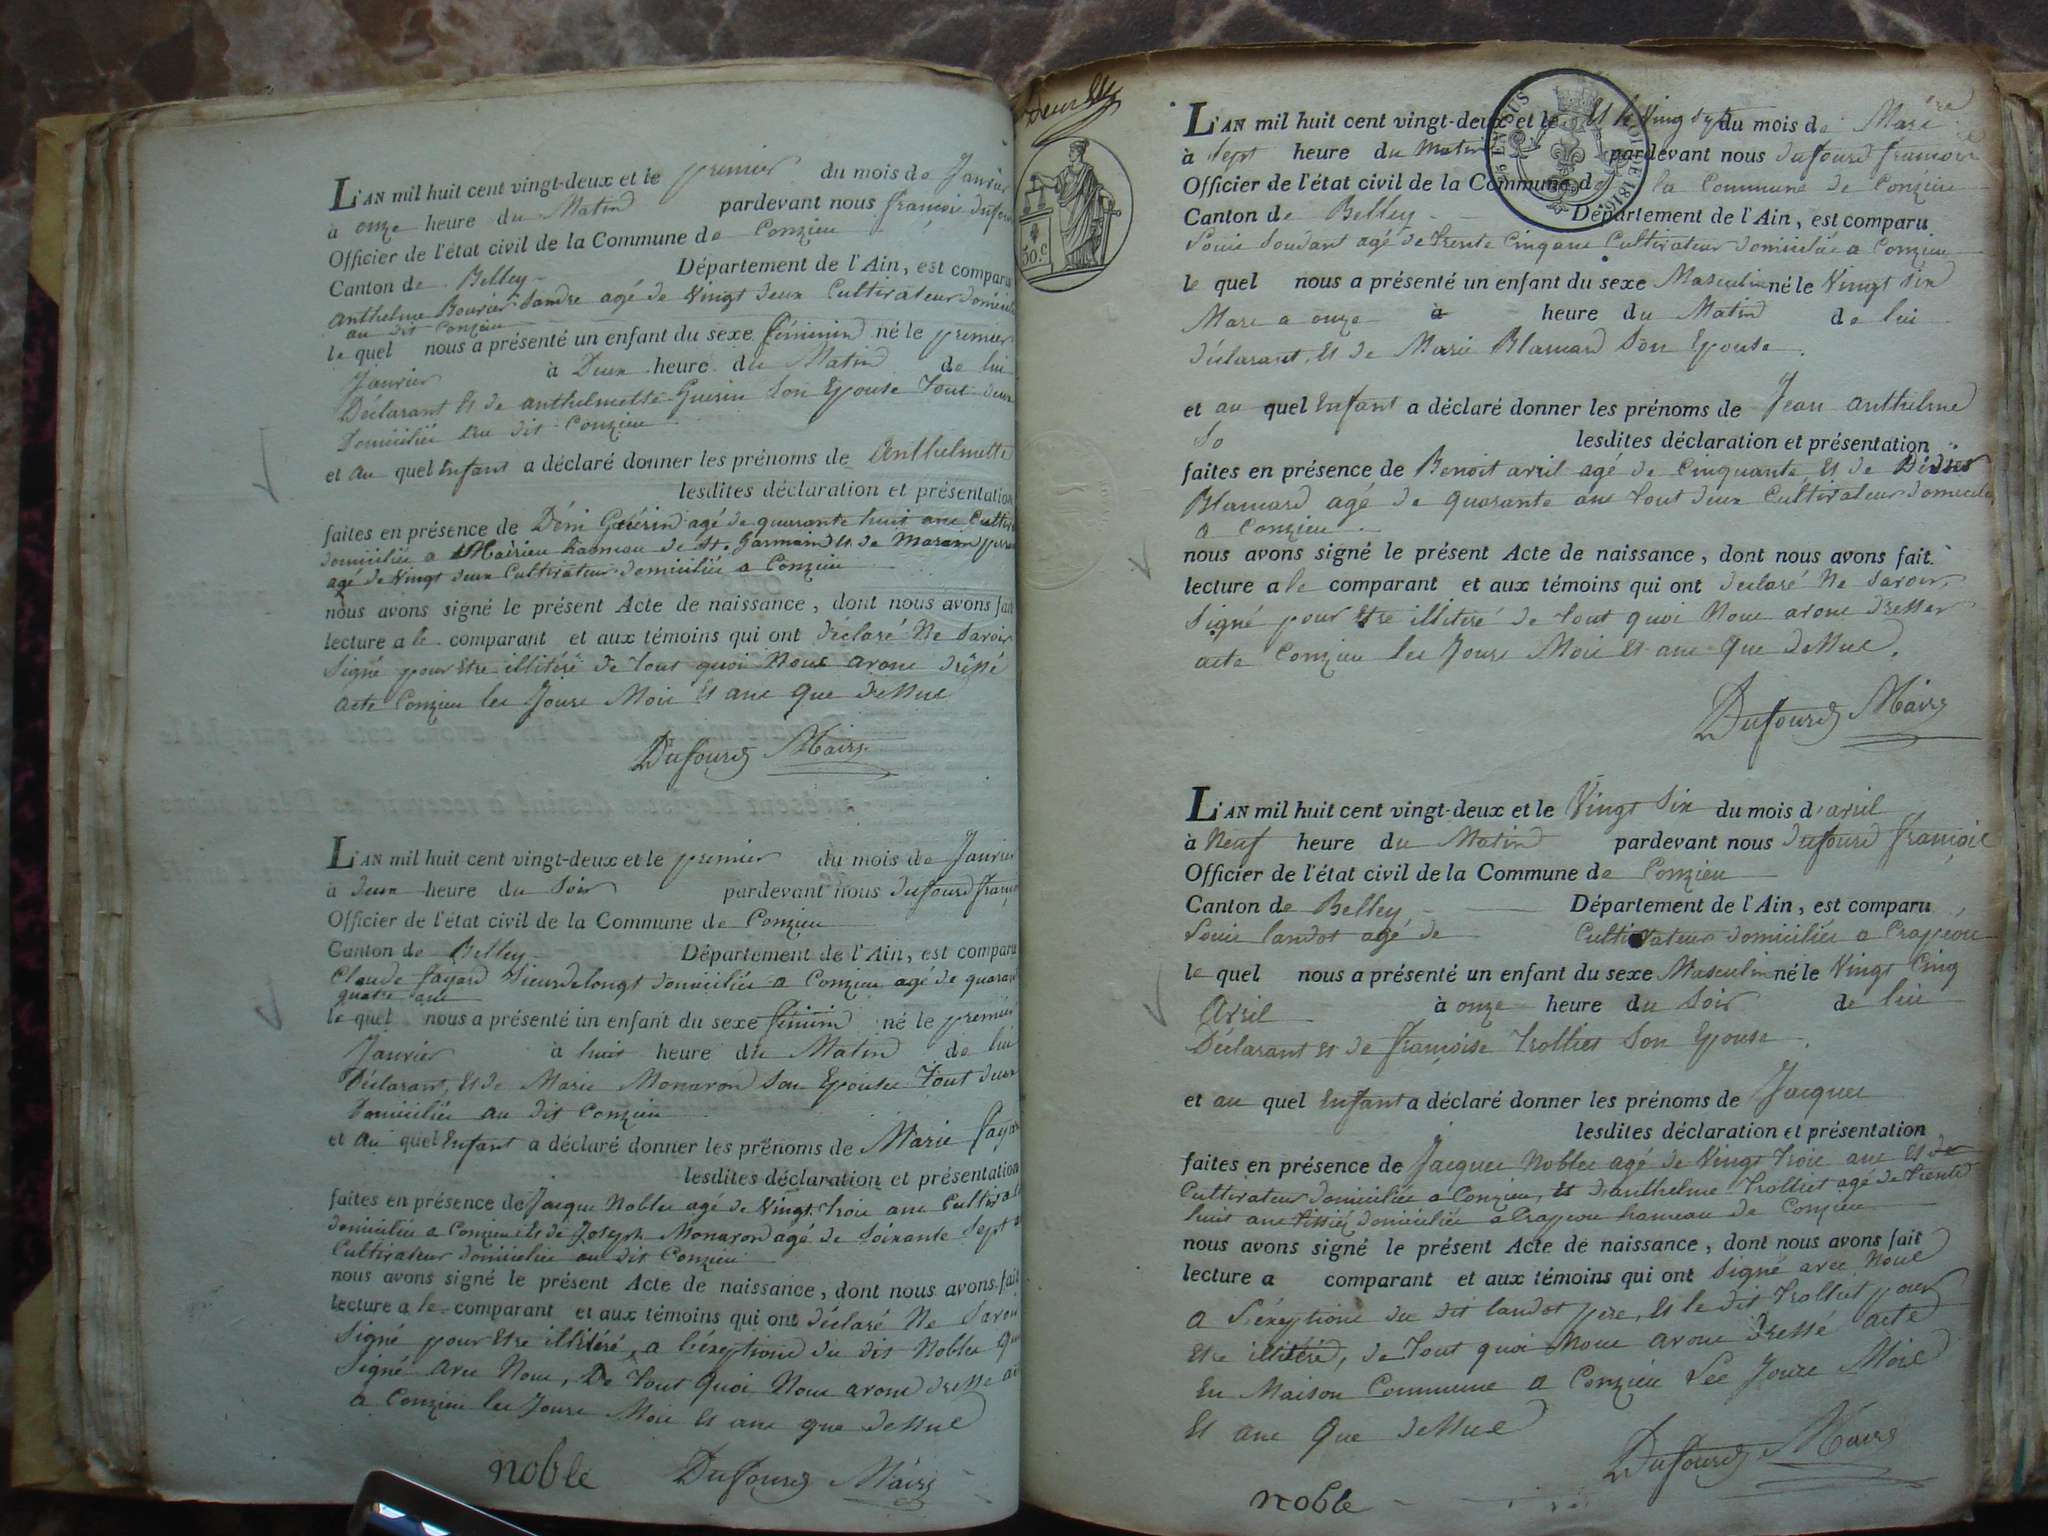 L'AN mil huit cent vingt-deux et le premier du mois de Janvier
à onze heure du Matin pardevant nous françois dufour
Officier de l'état civil de la Commune de Conzieu
Canton de Belley Département de l'Ain, est comparu
Anthelme Bouvier agé de Vingt deux Cultivateur domicilié
au dit Conzieu
le quel nous a présenté un enfant du sexe féminin né le premier
Janvier à Deux heure du Matin de lui
Déclarant Et de anthelmette Guerin Son Epouse tout deux
Domicilié au dit Conzieu
et au quel Enfant a déclaré donner les prénoms de Anthelmette
lesdites déclaration et présentation
faites en présence de Déni Guérin agé de quarante huit ans Cultiv
domicilié a hameau de St. Germain et de
agé de Vingt deux Cultivateur domicilié a Conzieu
nous avons signé le présent Acte de naissance, dont nous avons fait
lecture a le comparant et aux témoins qui ont déclaré Ne Savoir
Signé pour Etre illitéré de tout quoi Nous avons dressé
acte Conzieu les Jours Mois Et ans que dessus
Dufourd Maire
L'AN mil huit cent vingt-deux et le premier du mois de Janvier
à deux heure du Soir pardevant nous dufourd franço
Officier de l'état civil de la Commune de Conzieu
Canton de Belley Département de l'Ain, est comparu
Claude fayard domicilié a Conzieu agé de quarante
quatre ans
le quel nous a présenté un enfant du sexe féminin né le premier
Janvier à huit heure du Matin de lui
Déclarant, Et de Marie Monavon Son Epouse tout deux
Domicilié au dit Conzieu
et au quel Enfant a déclaré donner les prénoms de Marie faya
lesdites déclaration et présentation
faites en présence de Jacque Noble agé de Vingt trois ans Cultivate
domicilié a Conzieu Et de Joseph Monavon agé de Soixante Sept
Cultivateur domicilié au dit Conzieu
nous avons signé le présent Acte de naissance, dont nous avons fait
lecture a le comparant et aux témoins qui ont déclaré Ne Savoir
Signé pour Etre illitéré, a l'exeptions du dit Noble Qui
Signé avec Nous, De tout Quoi Nous avons dressé
a Conzieu les Jours Mois Et ans que dessus
noble Dufourd Maire
30.c
L'AN mil huit cent vingt-deux et le Et le Vingt Sept du mois de Mars
à Sept heure du Matin pardevant nous dufourd françois
Officier de l'état civil de la Commune de la Commune de Conzieu
Canton de Belley Département de l'Ain, est comparu
Louis Soudant agé de trente Cinq ans Cultivateur domicilié a Conzieu
le quel nous a présenté un enfant du sexe Masculin né le Vingt Six
Mars a onze à heure du Matin de lui
déclarant, Et de Marie Blanard Son Epouse
et au quel Enfant a déclaré donner les prénoms de Jean Anthelme
So lesdites déclaration et présentation
faites en présence de Benoit avril agé de Cinquante, Et de
Blanard agé de quarante ans tout deux Cultivateur domicilié
a Conzieu
nous avons signé le présent Acte de naissance, dont nous avons fait
lecture a le comparant et aux témoins qui ont déclaré Ne Savoir
Signé pour Etre illitéré de tout quoi Nous avons dresser
acte Conzieu les Jours Mois Et ans Que dessus.
Dufourd Maire
L'AN mil huit cent vingt-deux et le Vingt Six du mois d'avril
à Neuf heure du Matin pardevant nous dufourd françois
Officier de l'état civil de la Commune de Conzieu
Canton de Belley Département de l'Ain, est comparu
Louis landot agé de Cultivateur domicilié a Crapeou
le quel nous a présenté un enfant du sexe Masculin né le Vingt Cinq
Avril à onze heure du Soir de lui
Déclarant Et de françoise trolliet Son Epouse
et au quel Enfant a déclaré donner les prénoms de Jacques
lesdites déclaration et présentation
faites en présence de Jacques Noble agé de Vingt trois ans Et de
Cultivateur domicilié a Conzieu, Et d'anthelme trolliet agé de trente
huit ans domicilié a Crapeou hameau de Conzieu
nous avons signé le présent Acte de naissance, dont nous avons fait
lecture a comparant et aux témoins qui ont Signé avec Nous
a l'éxeptions du dit landot pere, Et le dit trolliet pour
Etre illitéré, de tout quoi Nous avons dressé acte
En Maison Commune a Conzieu Les Jours Mois
Et ans Que dessus
Dufourd Maire
noble